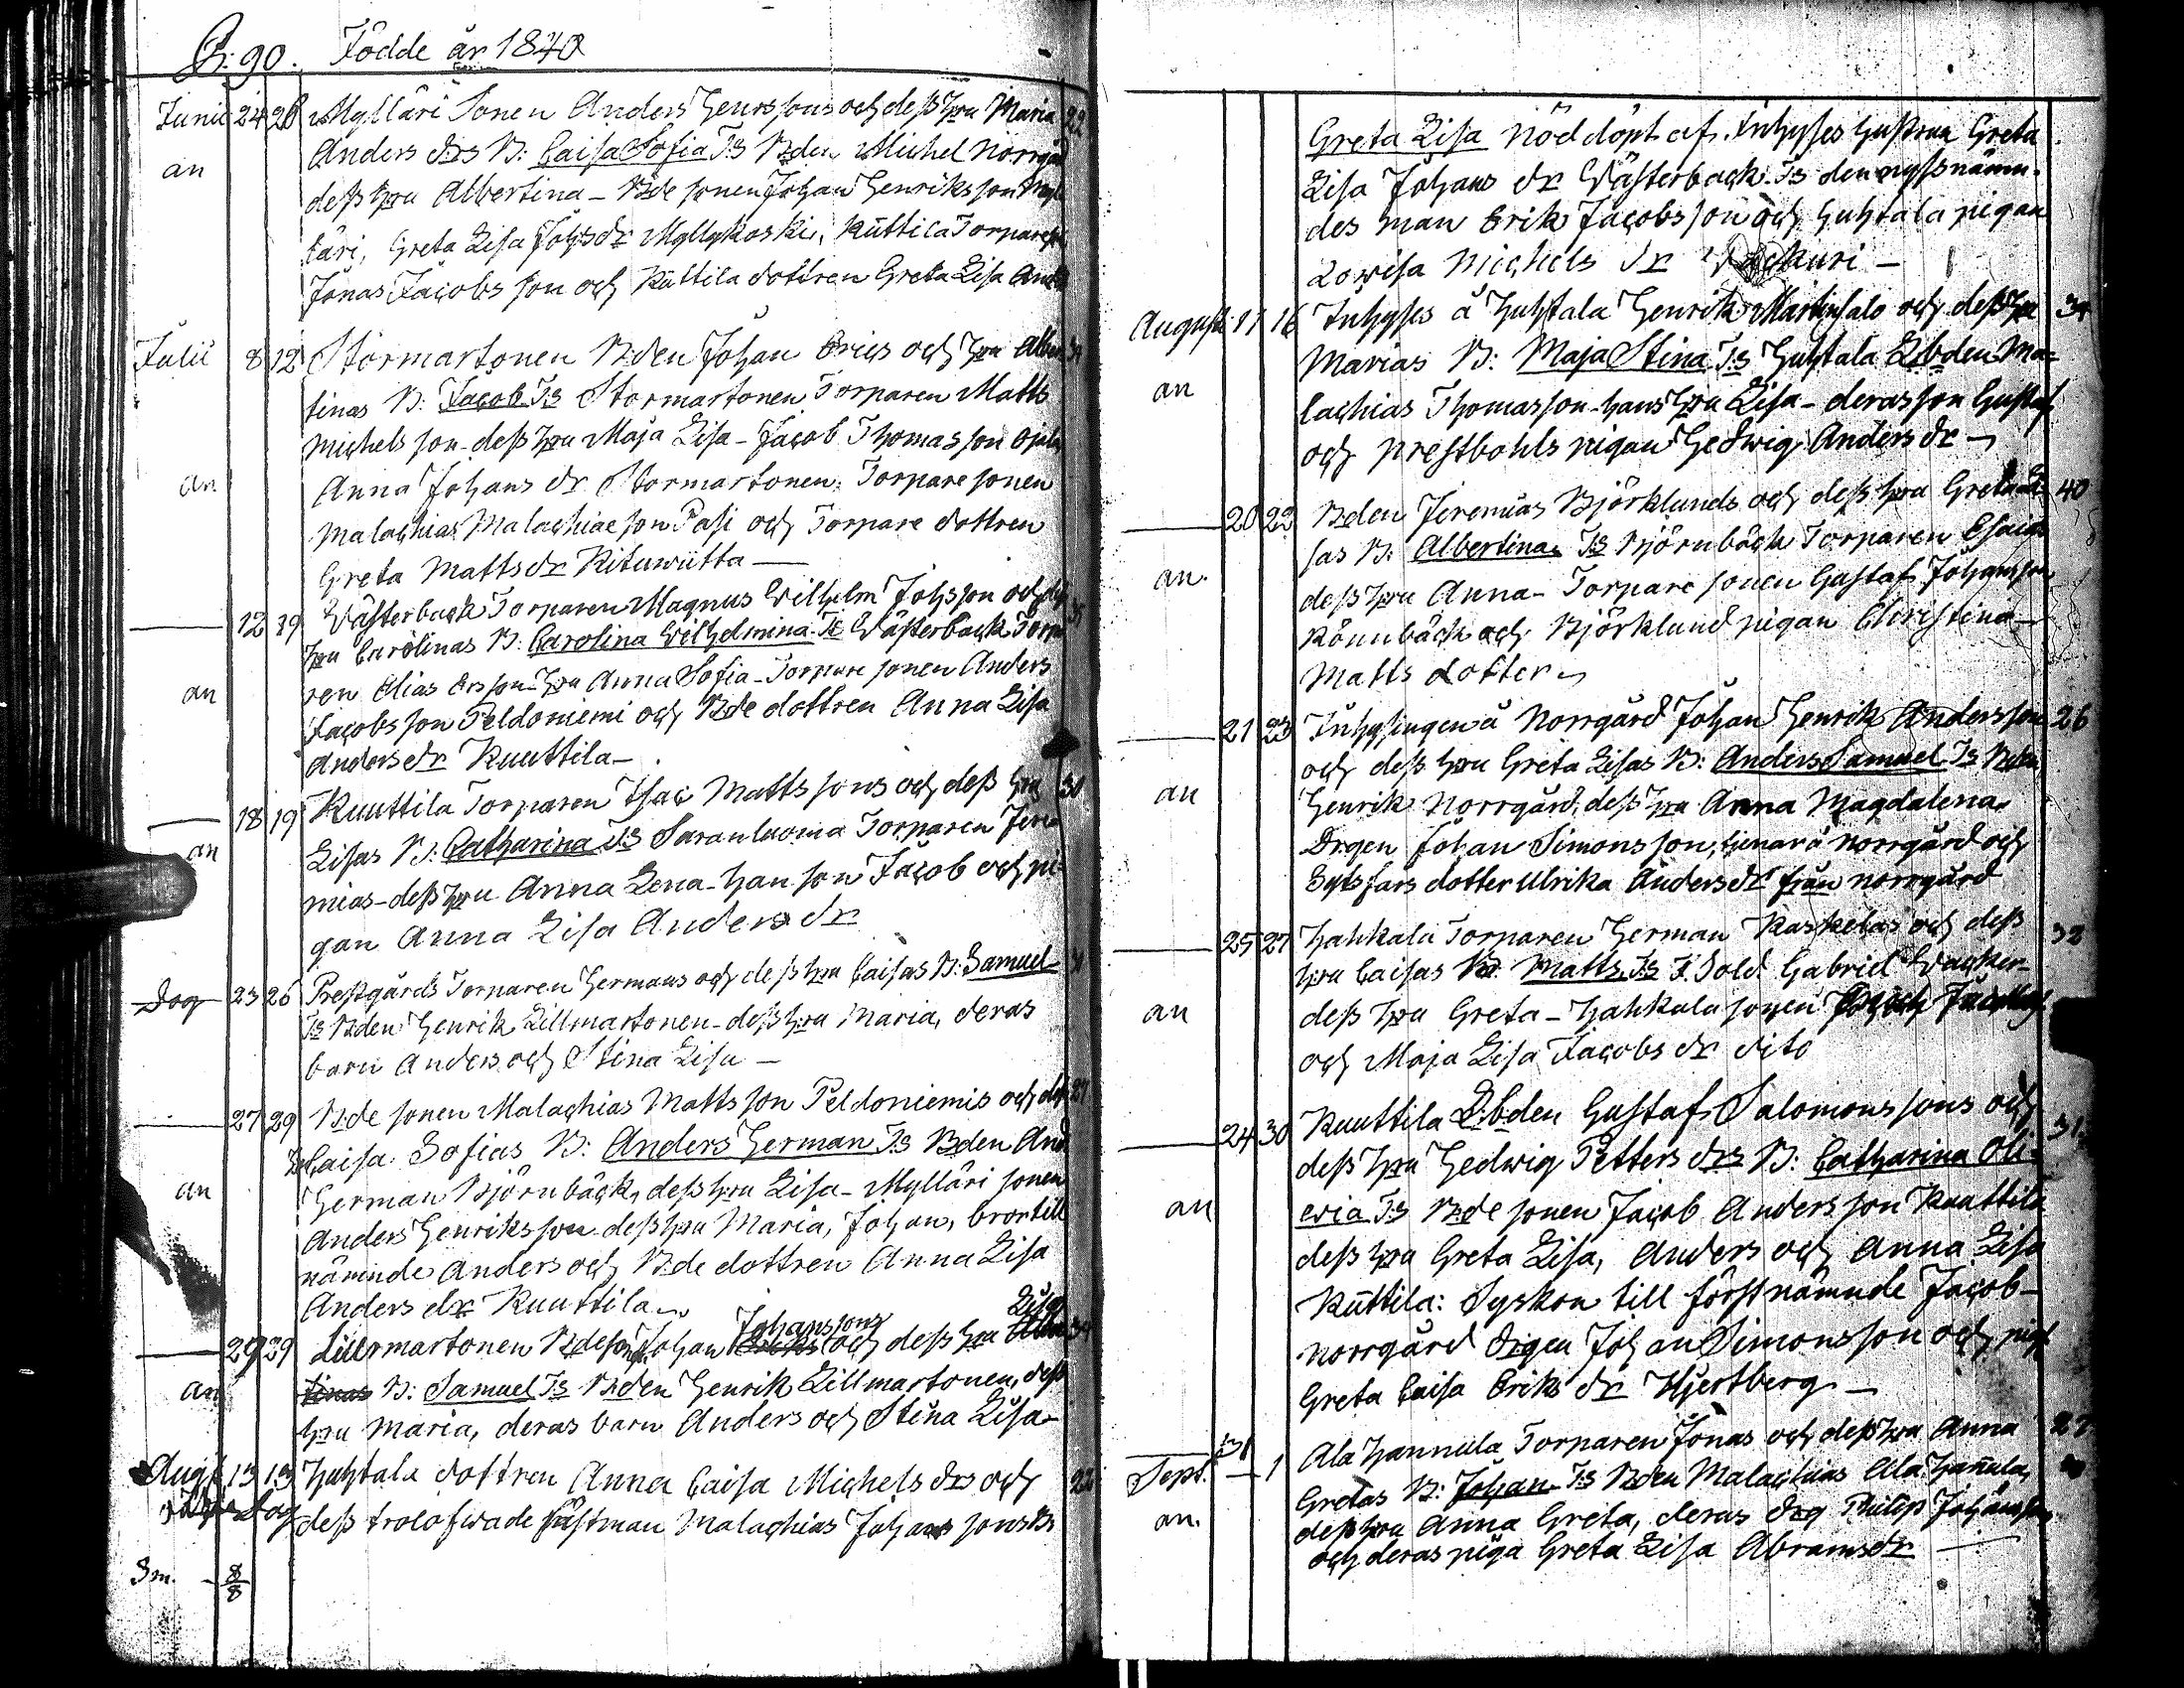 P: 90. Födde år 1840
Junii 24 28 Mylläri Sonen Anders Henrssons och dess hru Maria 22
an Anders drs B: Caisa Sofia Ts Bden Michel Norrgård
dess hru Albertina - Bde sonen Johan Henriksson Myl
läri, Greta Lisa Johs dr Myllykoski, Kuttila Torpare
Jonas Jacobs son och Kuttila dottren Greta Lisa And
Julii 8 12 Stormartonen Bden Johan Erics och hru Alber
tinas B: Jacob Ts Stormartonen Torparen Matts
Michels son - dess hru Maja Lisa - Jacob Thomas son
an Anna Johans dr Stormartonen: Torpare sonen
Malachias Malachiae son Pasi och Torpare dottren
Greta Matts dr Rituwiitta —
— 12 19 Wästerback Torparen Magnus Wilhelm Johsson och
hru Carolinas B: Carolina Wilhelmina Ts Wästerback Torpa
ren Elias Ersson - hru Anna Sofia - Torpare sonen Anders
an Jacobs son Peldoniemi och Bde dottren Anna Lisa
Anders dr Kuuttila —
— 18 19 Kuuttila Torparen Isac Matts sons och dess hru 30
an Lisas B: Catharina Ts Saranluoma Torparen Jere
mias - dess hru Anna Lena - han son Jacob och pi
gan Anna Lisa Anders dr
Dog 23 26 Prestgårds Torparen Hermans och dess hru Caisas B: Samuel
Ts Bden Henrik Lillmartonen - dess hru Maria, deras
barn Anders och Stina Lisa —
— 27 29 Bde sonen Malachias Matts son Peldoniemis och 27
Caisa Sofias B: Anders Herman Ts Bden And
an Herman Björnbäck, dess hru Lisa - Mylläri sonen
Anders Henriksson dess hru Maria, Johan, bror till
nämnde Anders och Bde dottren Anna Lisa
Anders dr Kuuttila —
Johanssons Lisa
— 29 29 Lillmartonen Bdeson Johan och dess hru 34
an tinas B: Samuel Ts Bden Henrik Lillmartonen, dess
hru Maria, deras barn Anders och Stina Lisa
Aug 13 13 Huhtala dottren Anna Caisa Michels drs och 22
Dog dess trolofwade fästman Malachias Johans sons B:
Sm. 8/8
Greta Lisa nöddöpt af Inhyses hustrun Greta
Lisa Johans dr Wästerback Ts den nyssnämn-
des man Erik Jacobs son och Huhtala pigan
Lowisa Michels dr
August 11 16 Inhyses å Huhtala Henrik Martinsalo och dess hru 34
an Marias B: Maja Stina Ts Huhtala Lbden Ma-
lachias Thomasson - hans hru Lisa - deras son Gustaf
och prestbohls pigan Hedwig Anders dr —
— 20 23 Bden Jeremias Björklunds och dess hru Greta Li 40
sas B: Albertina Ts Björnbäck Torparen Esaias
an. dess hru Anna - Torpare sonen Gustaf Johansson
Rönnbäck och Björklund pigan Christina
Matts dotter
— 21 23 Inhysingen å Norrgård Johan Henrik Andersson 26
och dess hru Greta Lisas B: Anders Samuel Ts Bden
an Henrik Norrgård, dess hru Anna Magdalena
Drgen Johan Simonsson, tjenar å norrgård och
Sytsfars dotter Ulrika Anders dr från norrgård
— 25 27 Hahkala Torparen Herman Kaskelas och dess 32
hru Caisas B: Matts Ts F. Sold. Gabriel Wacker-
an dess hru Greta - Hahkala sonen
och Maja Lisa Jacobs dr dito
— 24 30 Kuuttila Lbden Gustaf Salomons sons och 31
dess hru Hedwig Petters drs B: Catharina Oli-
an evia Ts Bde sonen Jacob Andersson Kuuttila
dess hru Greta Lisa, Anders och Anna Lisa
Kuttila: Syskon till förstnämnde Jacob —
norrgård drgen Johan Simonsson och pig
Greta Caisa Eriks dr Hjertberg —
31
Sept. — 1 Ala Hannula Torparen Jonas och dess hru Anna 27
Gretas B: Johan Ts Bden Malachias Ala Hannula,
an. dess hru Anna Greta, deras drg Philip Johansson
och deras piga Greta Lisa Abrams dr —